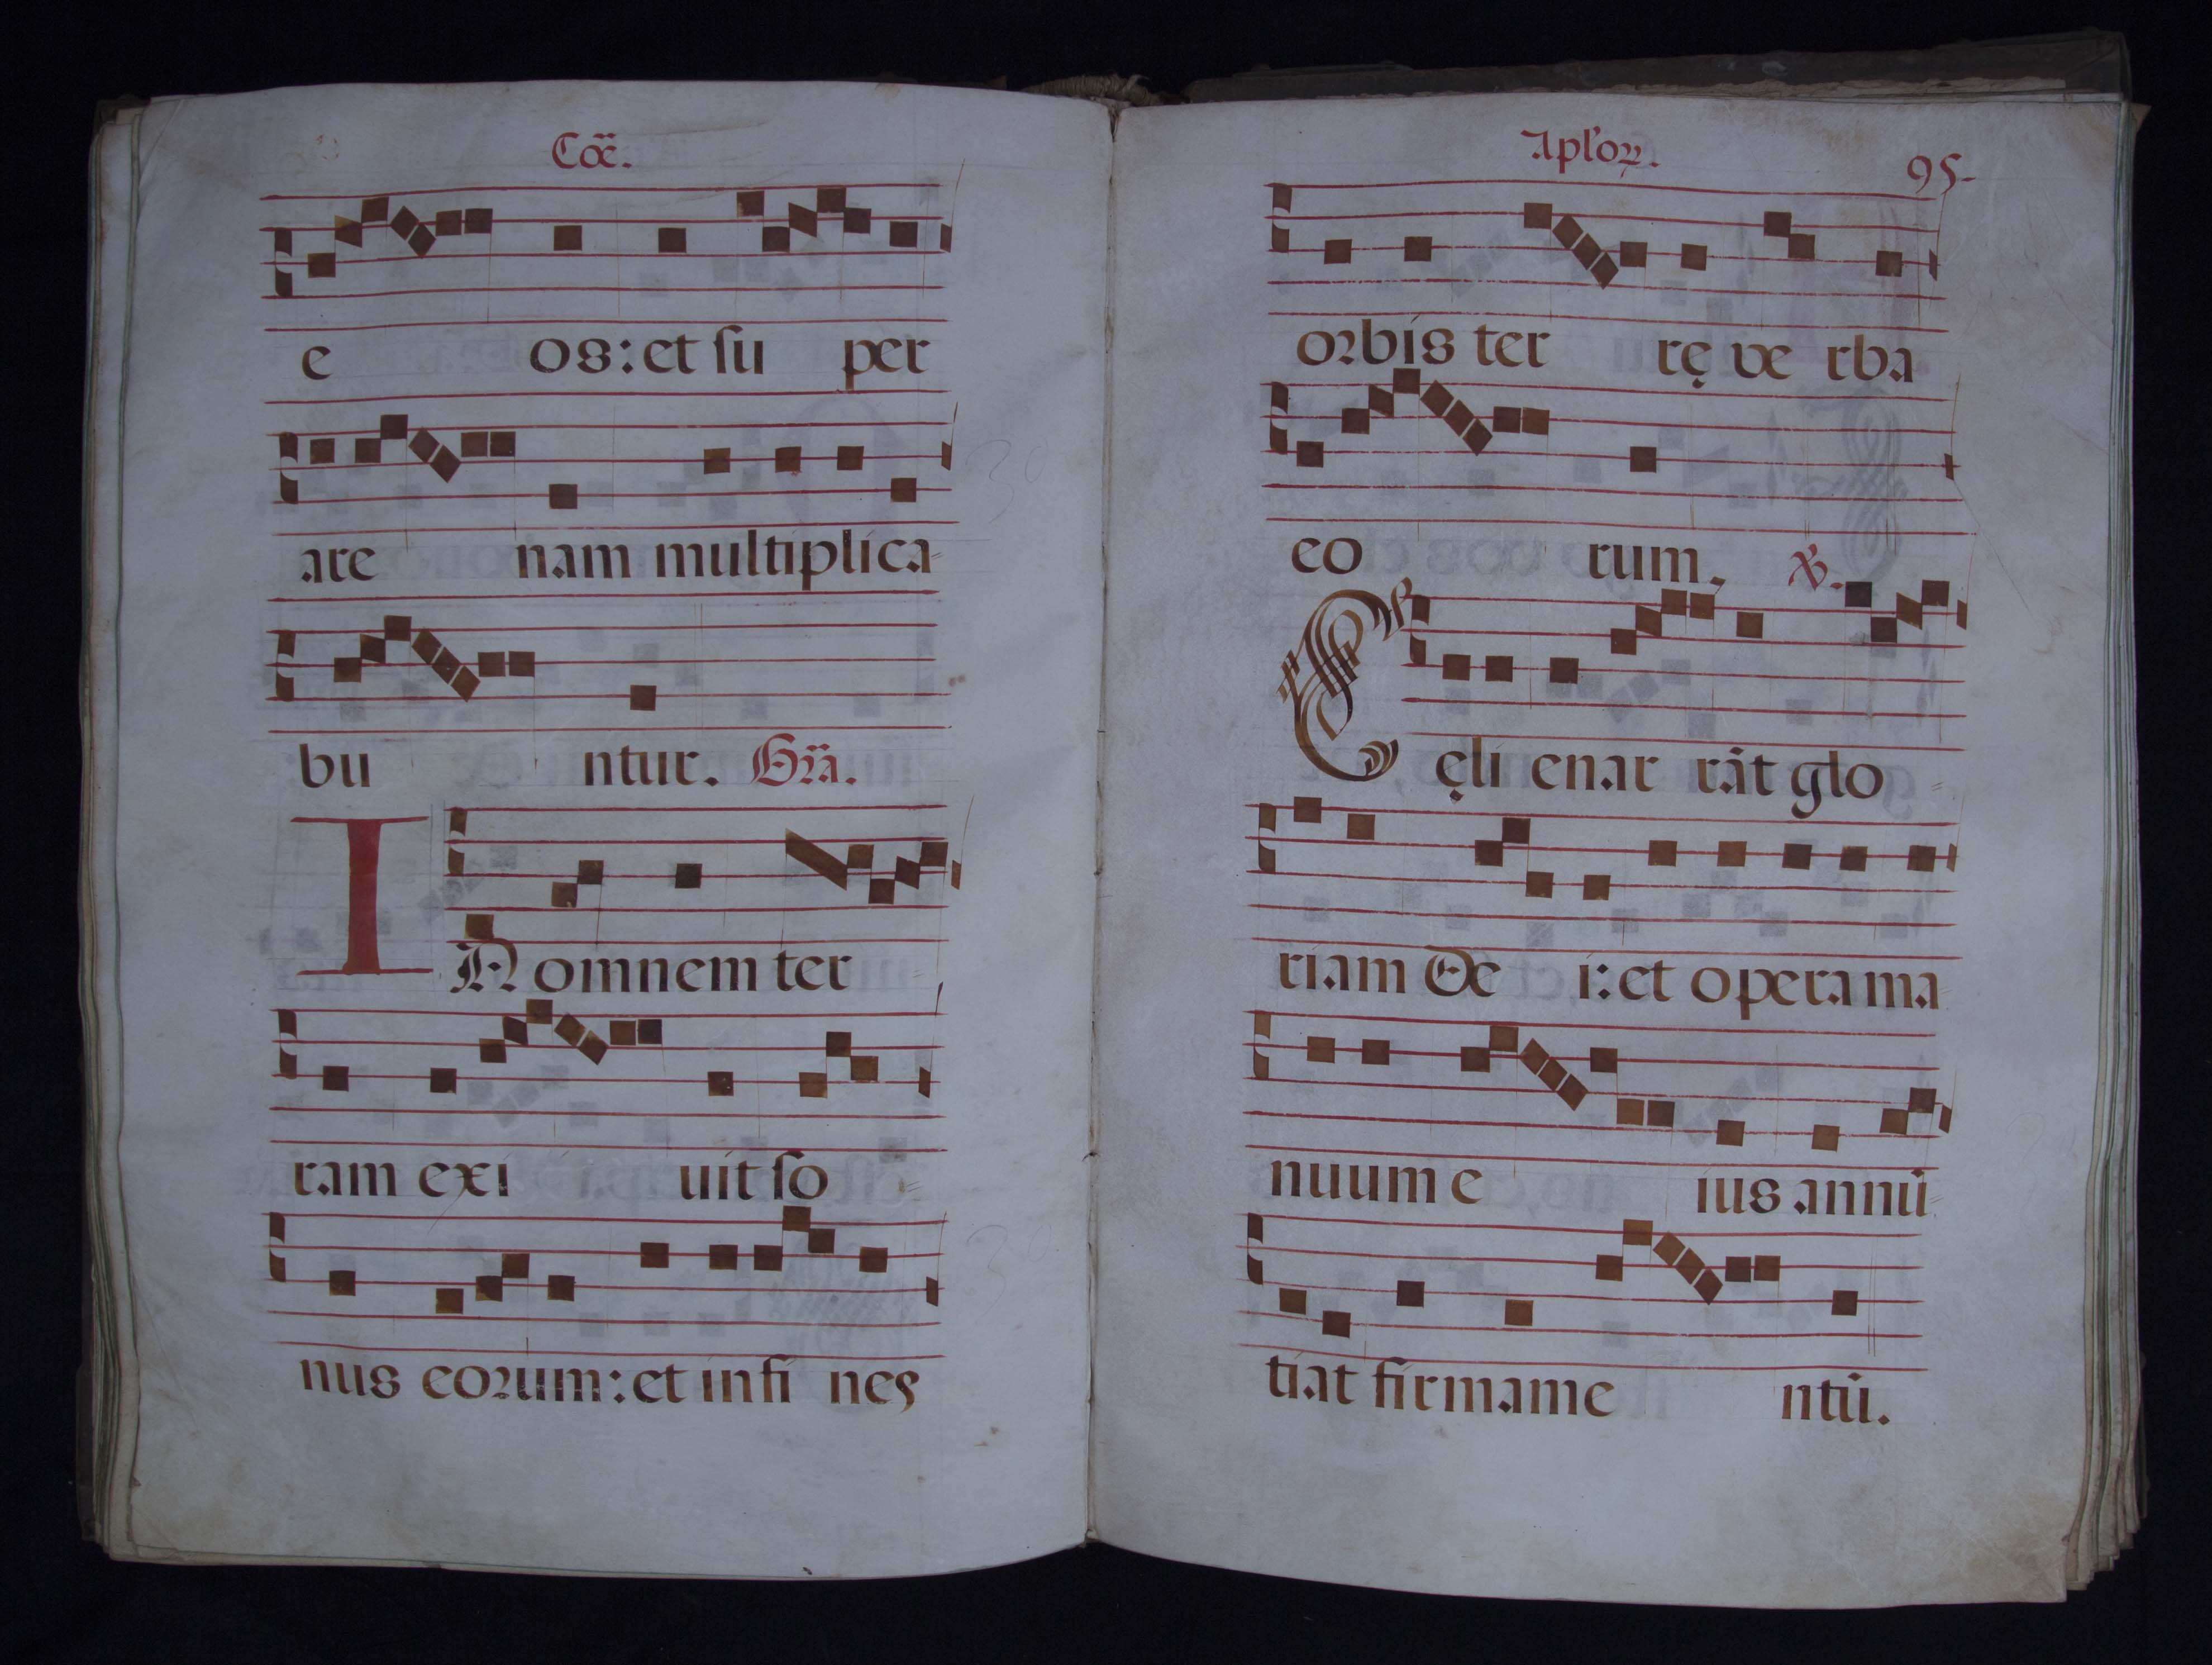 Cõe.
e os: et ſu per
are nam multiplica-
bu ntur. Gra͂.
IN omnem ter
ram exi uit ſo
nus eoꝛum: et in fi nes
Aploꝝ. 95-
oꝛbis ter rę ve rba
eo rum. ℣.
Cęli enar rãt glo
riam De i: et opera ma
nuum e ius annũ
tiat firmame ntũ.